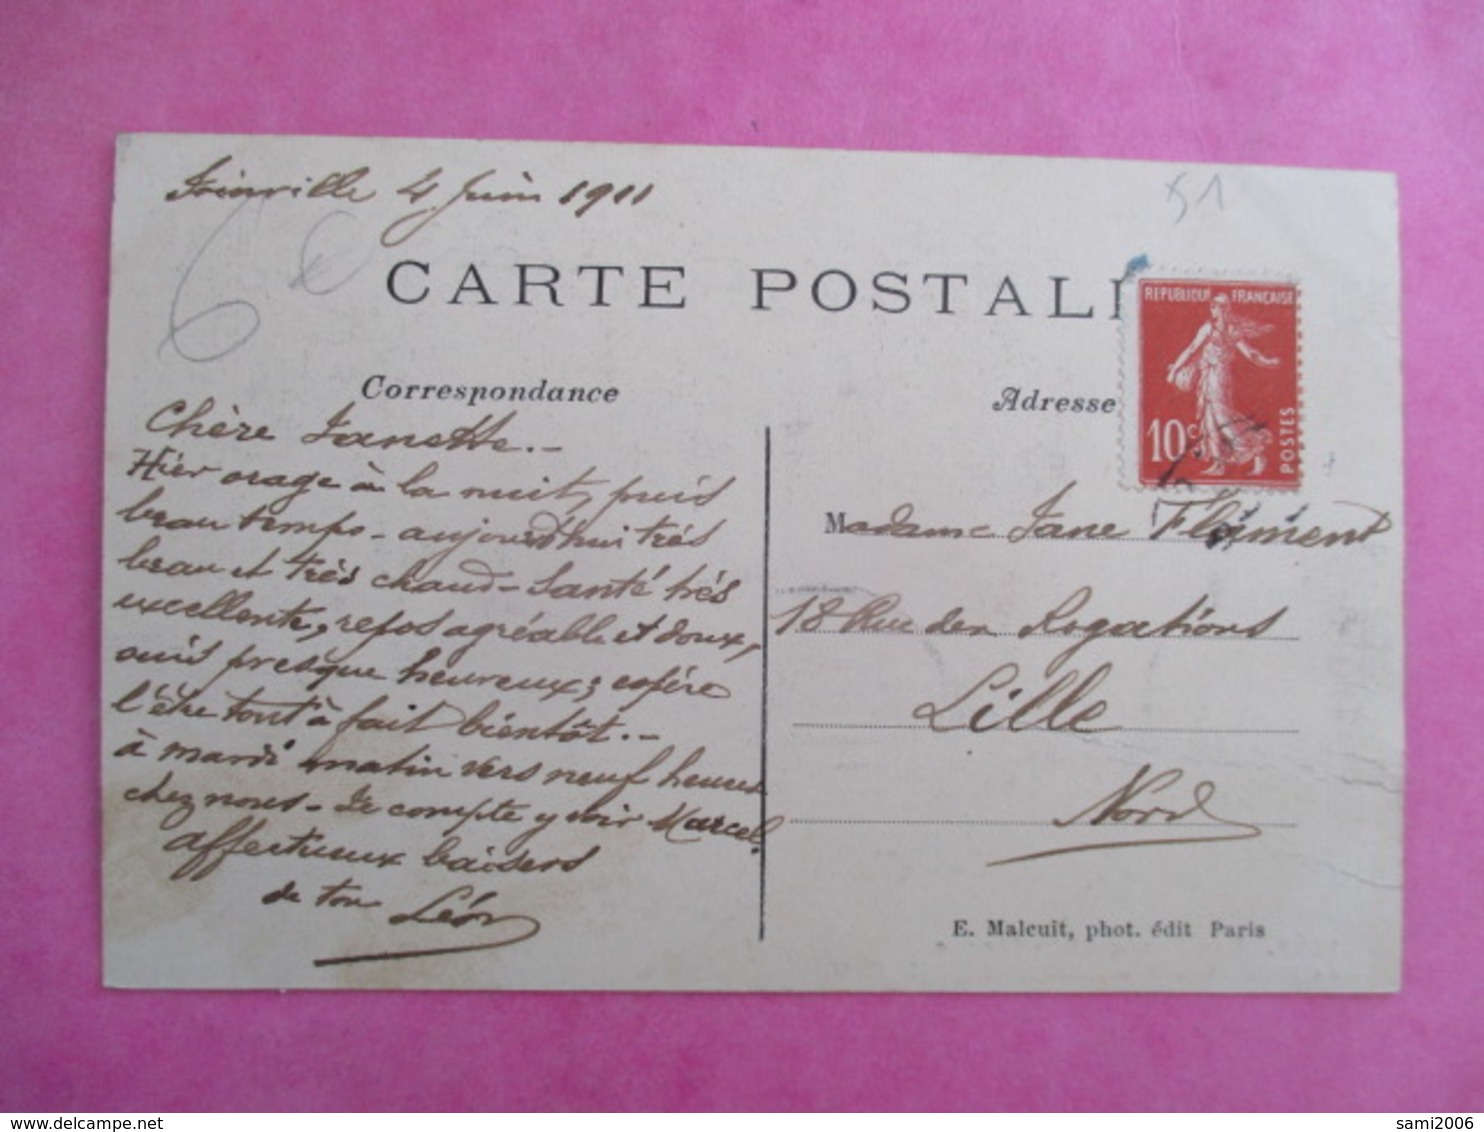 Joinville 4 Juin 1911
51
CARTE POSTALE
REPUBLIQUE FRANÇAISE
10c
POSTES
Correspondance
Adresse
Chère Janette.-
Hier orage à la nuit, puis
beau temps - aujourd'hui très
beau et très chaud - Santé très
excellente, repos agréable et doux,
suis presque heureux; espère
l'être tout à fait bientôt.-
à mardi matin vers neuf heures
chez nous - Je compte y voir Marcel.
affectueux baisers
de ton Léon
Madame Jane Flament
18 Rue des Rogations
Lille
Nord
E. Malcuit, phot. édit Paris
delcampe.net
sami2006